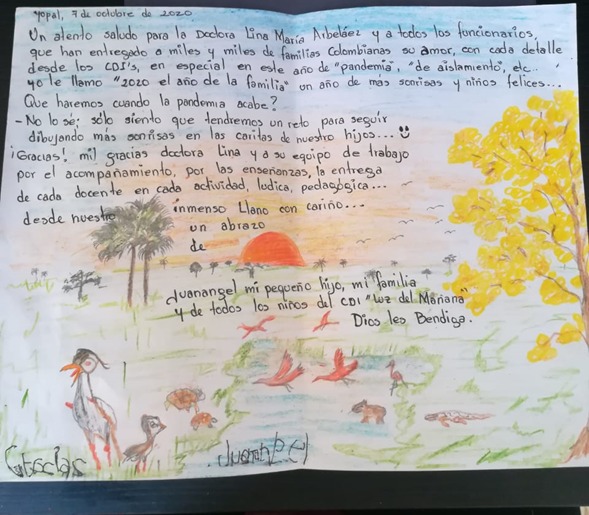 Yopal, 7 de octubre de 2020
Un atento saludo para la Doctora Lina María Arbeláez y a todos los funcionarios,
que han entregado a miles y miles de familias Colombianas su amor, con cada detalle
desde los CDI's, en especial en este año de "pandemia", "de aislamiento", etc..
yo le llamo "2020 el año de la familia" un año de más sonrisas y niños felices...
Que haremos cuando la pandemia acabe?
- No lo sé; sólo siento que tendremos un reto para seguir
dibujando más sonrisas en las caritas de nuestro hijos...
¡Gracias! mil gracias doctora Lina y a su equipo de trabajo
por el acompañamiento, por las enseñanzas, la entrega
de cada docente en cada actividad, ludica, pedagógica...
desde nuestro inmenso Llano con cariño...
un abrazo
de
Juanangel mi pequeño hijo, mi familia
y de todos los niños del CDI "Luz del Mañana"
Dios les Bendiga.
Gracias